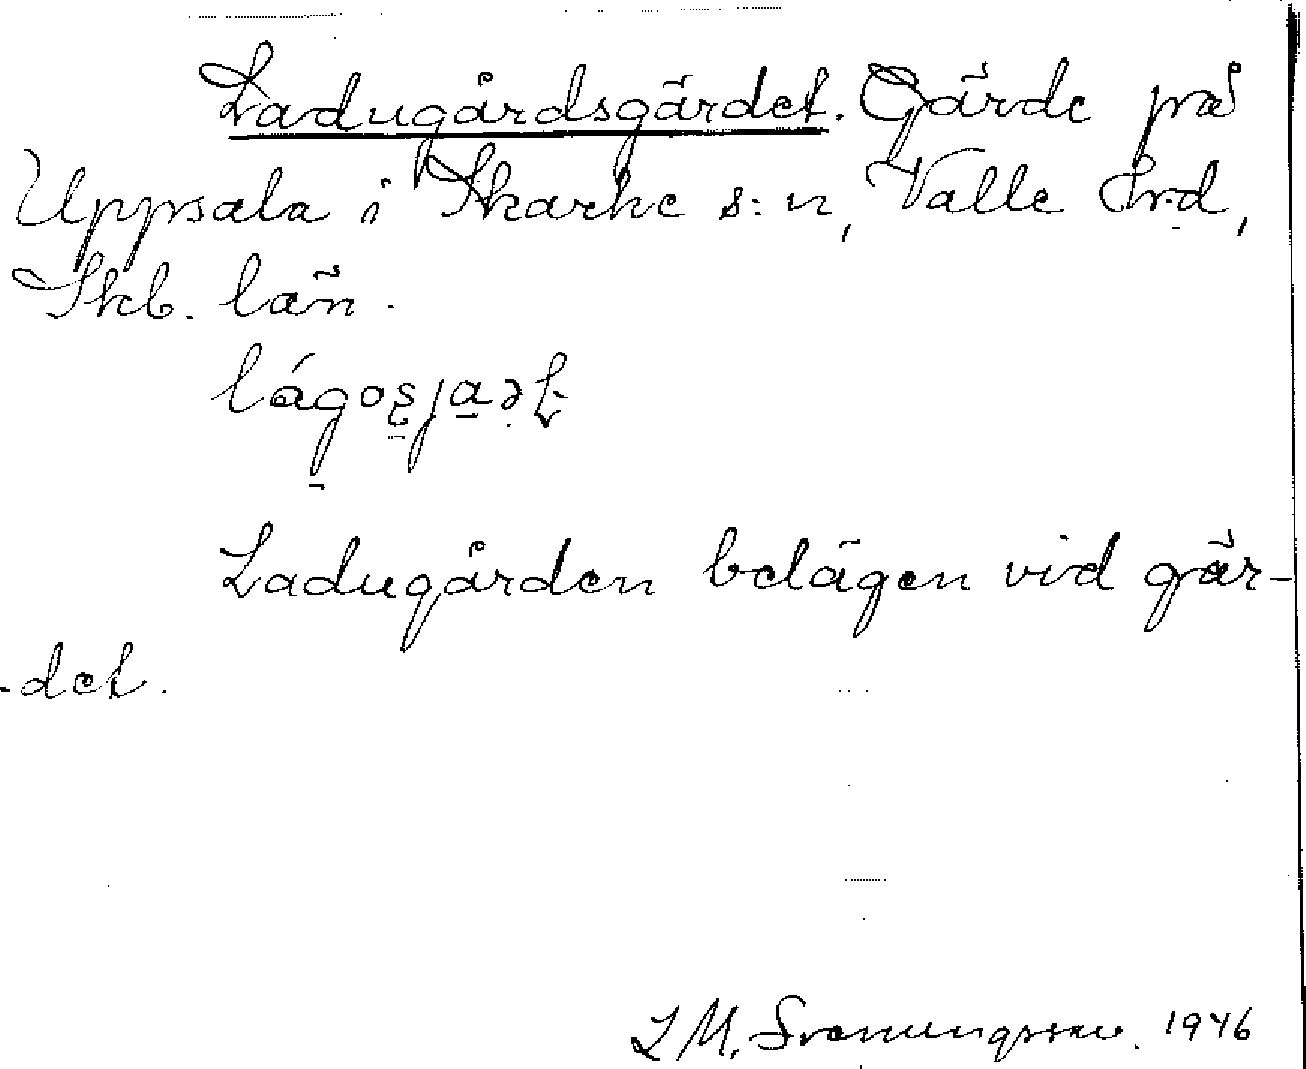 Ladugårdsgärdet. Gärde på
Uppsala i Skarke s:n, Valle Hrd,
Skb. län.
Ladugården belägen vid gär-
-det.
L M. Svenungsson. 1946